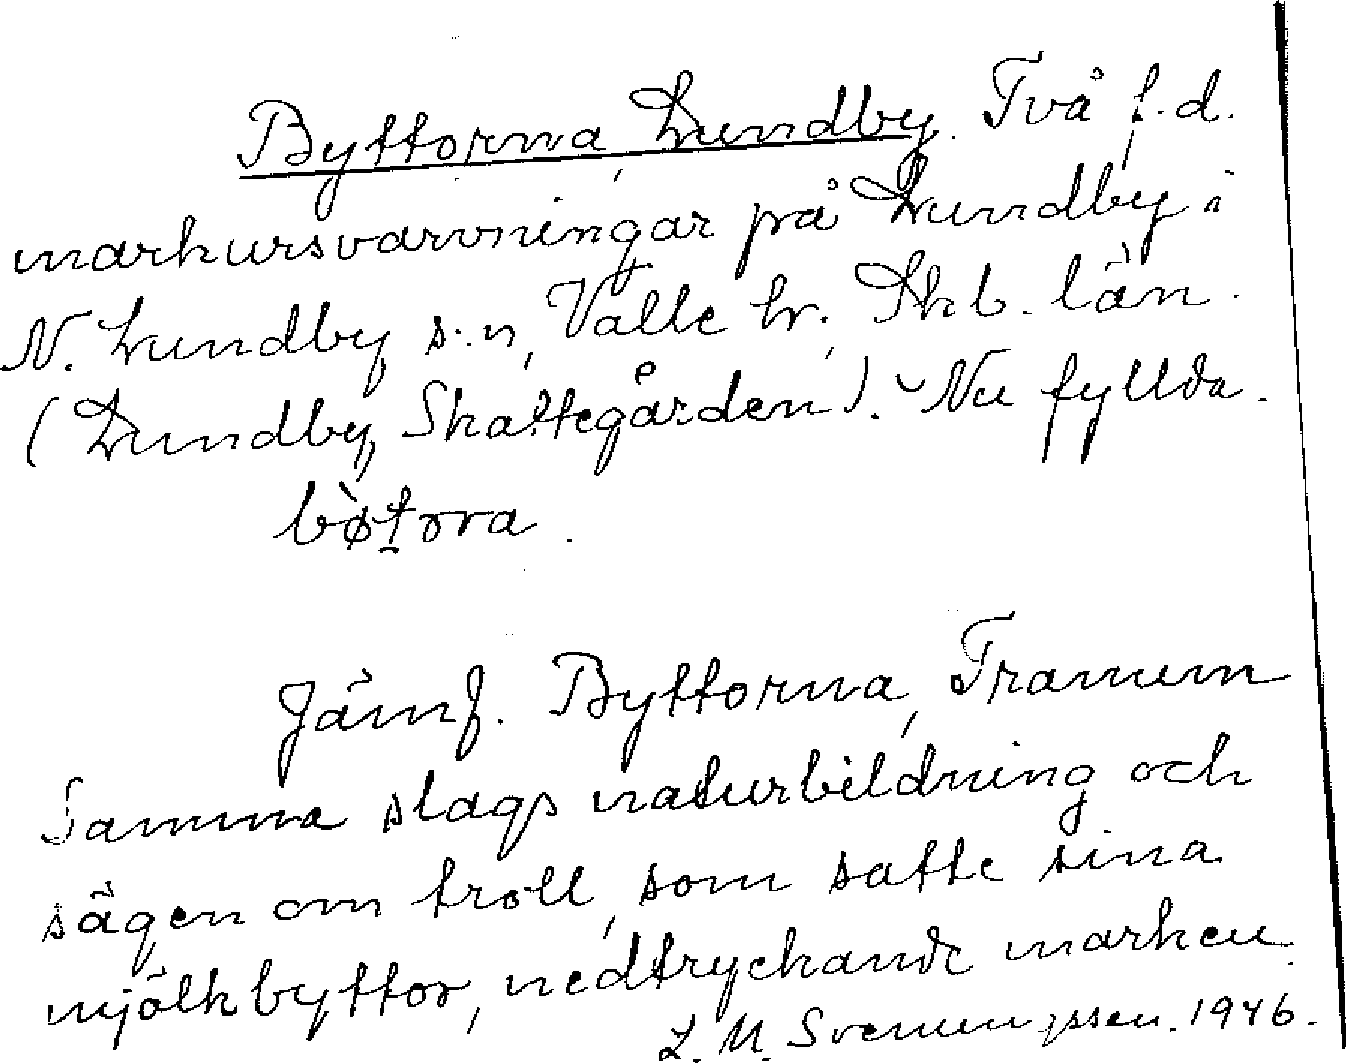 Byttorna, Lundby. Två f.d.
markursvarvningar på Lundby i
N. Lundby s:n, Valle hr, Skb. län.
(Lundby, Skattegården). Nu fyllda.
bøtora.
Jämf. Byttorna, Tranum
Samma slags naturbildning och
sägen om troll, som satte sina
mjölkbyttor, nedtryckande marken.
L. M. Svenungsson. 1946.